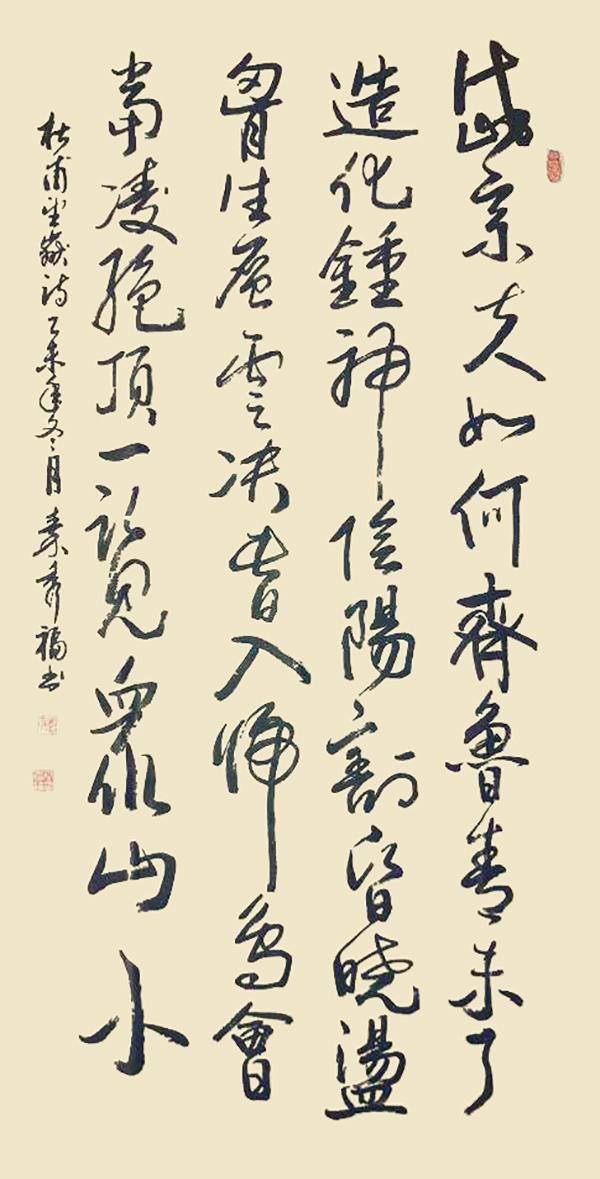 岱宗夫如何齊魯青未了
造化鍾神陰陽割昏晓盪
胷生層雲决眥入歸鳥會
當凌絕頂一覽眾山小
杜甫望嶽詩乙未年冬月秀福书